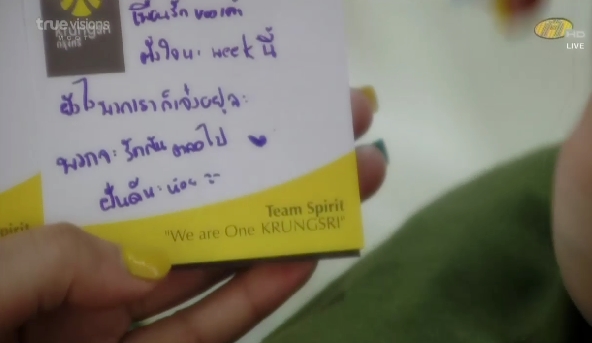 true visions
HD
LIVE
krungsri
กรุงศรี
เพื่อนรัก ของเค้า
ตั้งใจนะ week นี้
ยังไงพวกเราก็เจ๋งอยู่ละ
พวกจะรักกันตลอดไป ♥
ฝันดีนะ
Team Spirit
"We are One KRUNGSRI"
pirit
RI"